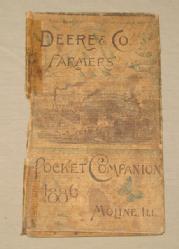 DEERE & CO.
FARMERS'
POCKET COMPANION
1886
MOLINE, ILL.